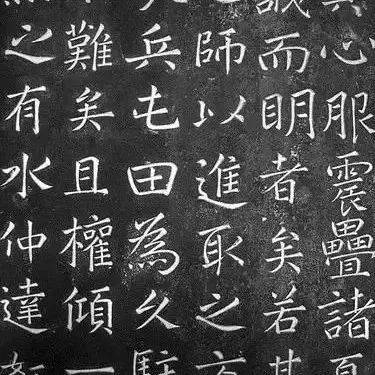 心服震疊諸夏
誠而明者矣若其
師以進取之
兵屯田為久駐
難矣且權傾一
之有水仲達